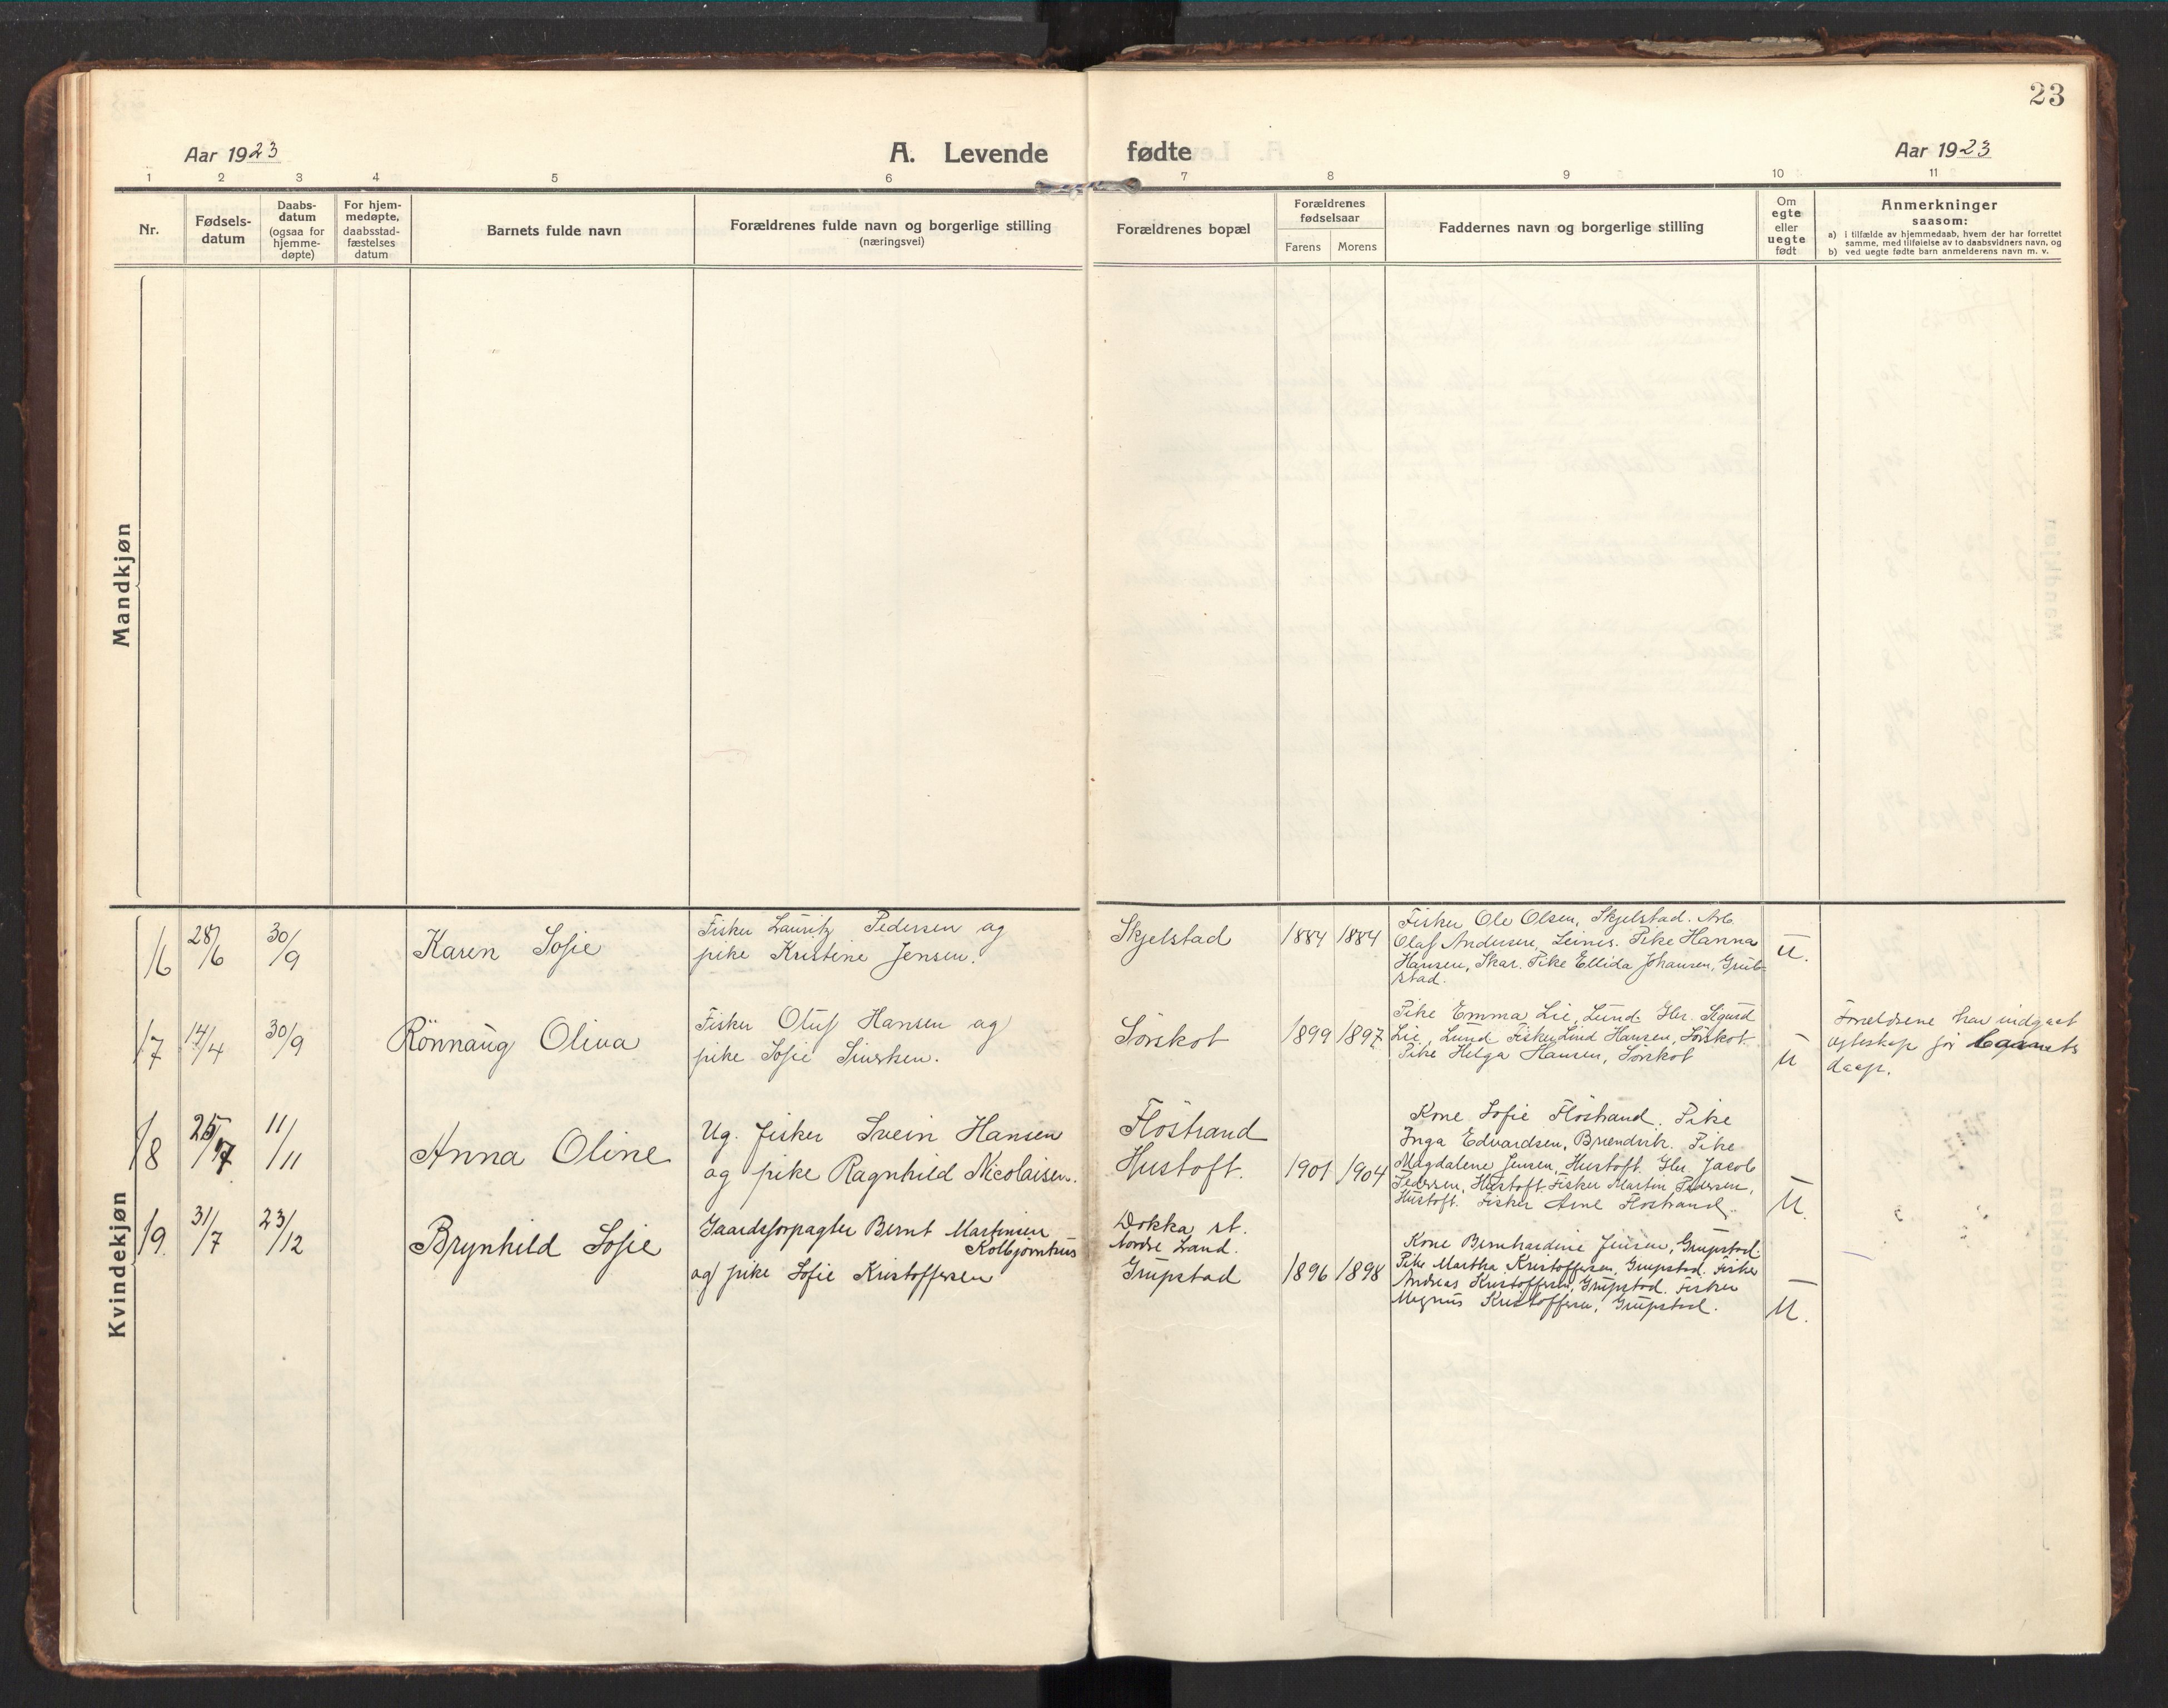 23
Aar 1923
A. Levende fødte
Aar 1923
1 2 3 4 5 6 7 8 9 10 11
Nr.
Fødsels-
datum
Daabs-
datum
(ogsaa for
hjemme-
døpte)
For hjem-
medøpte,
daabsstad-
fæstelses
datum
Barnets fulde navn
Forældrenes fulde navn og borgerlige stilling
(næringsvei)
Forældrenes bopæl
Forældrenes
fødselsaar
Farens Morens
Faddernes navn og borgerlige stilling
Om
egte
eller
uegte
født
Anmerkninger
saasom:
a) i tilfælde av hjemmedaab, hvem der har forrettet
samme, med tilføielse av to daabsvidners navn, og
b) ved uegte fødte barn anmelderens navn m. v.
Mandkjøn
Kvindekjøn
16
28/6
30/9
Karen Sofie
Fisker Lauritz Pedersen og
pike Kristine Jensen.
Skjelstad
1884 1884
Fisker Ole Olsen, Skjelstad. Arb.
Olaf Andersen, Leines. Pike Hanna
Hansen, Skar. Pike Ellida Johansen, Grub-
stad.
U.
17
14/4
30/9
Rönnaug Oliva
Fisker Oluf Hansen og
pike Sofie
Sörskot
1899 1897
Pike Emma Lie, Lund. Gbr. Sigurd
Lie, Lund. Fisker Hansen, Sörskot.
Pike Helga Hansen, Sörskot
U
Forældrene har indgaat
egteskap før barnets
daap.
18
25/7
11/11
Anna Oline
Ug. fisker Svein Hansen
og pike Ragnhild Nicolaisen.
Flöstrand
Hustoft.
1901 1904
Kone Sofie Flöstrand. Pike
Inga Edvardsen, Brændvik. Pike
Magdalene Jensen, Hustoft. Gbr. Jacob
Pedersen, Hustoft. Fisker Martin Pedersen,
Hustoft. Fisker Arne Flostrand.
U.
19.
31/7
23/12
Brynhild Sofie
Gaardsforpagter Bernt Martinsen
Kolbjørnhus
og pike Sofie Kristoffersen
Dokka st.
Nordre Land.
Grupstad
1896 1898
Kone Bernhardine Jensen, Grupstad.
Pike Martha Kristoffersen, Grupstad. Fisker
Andreas Kristoffersen, Grupstad. Fisker
Magnus Kristoffersen, Grupstad.
U.